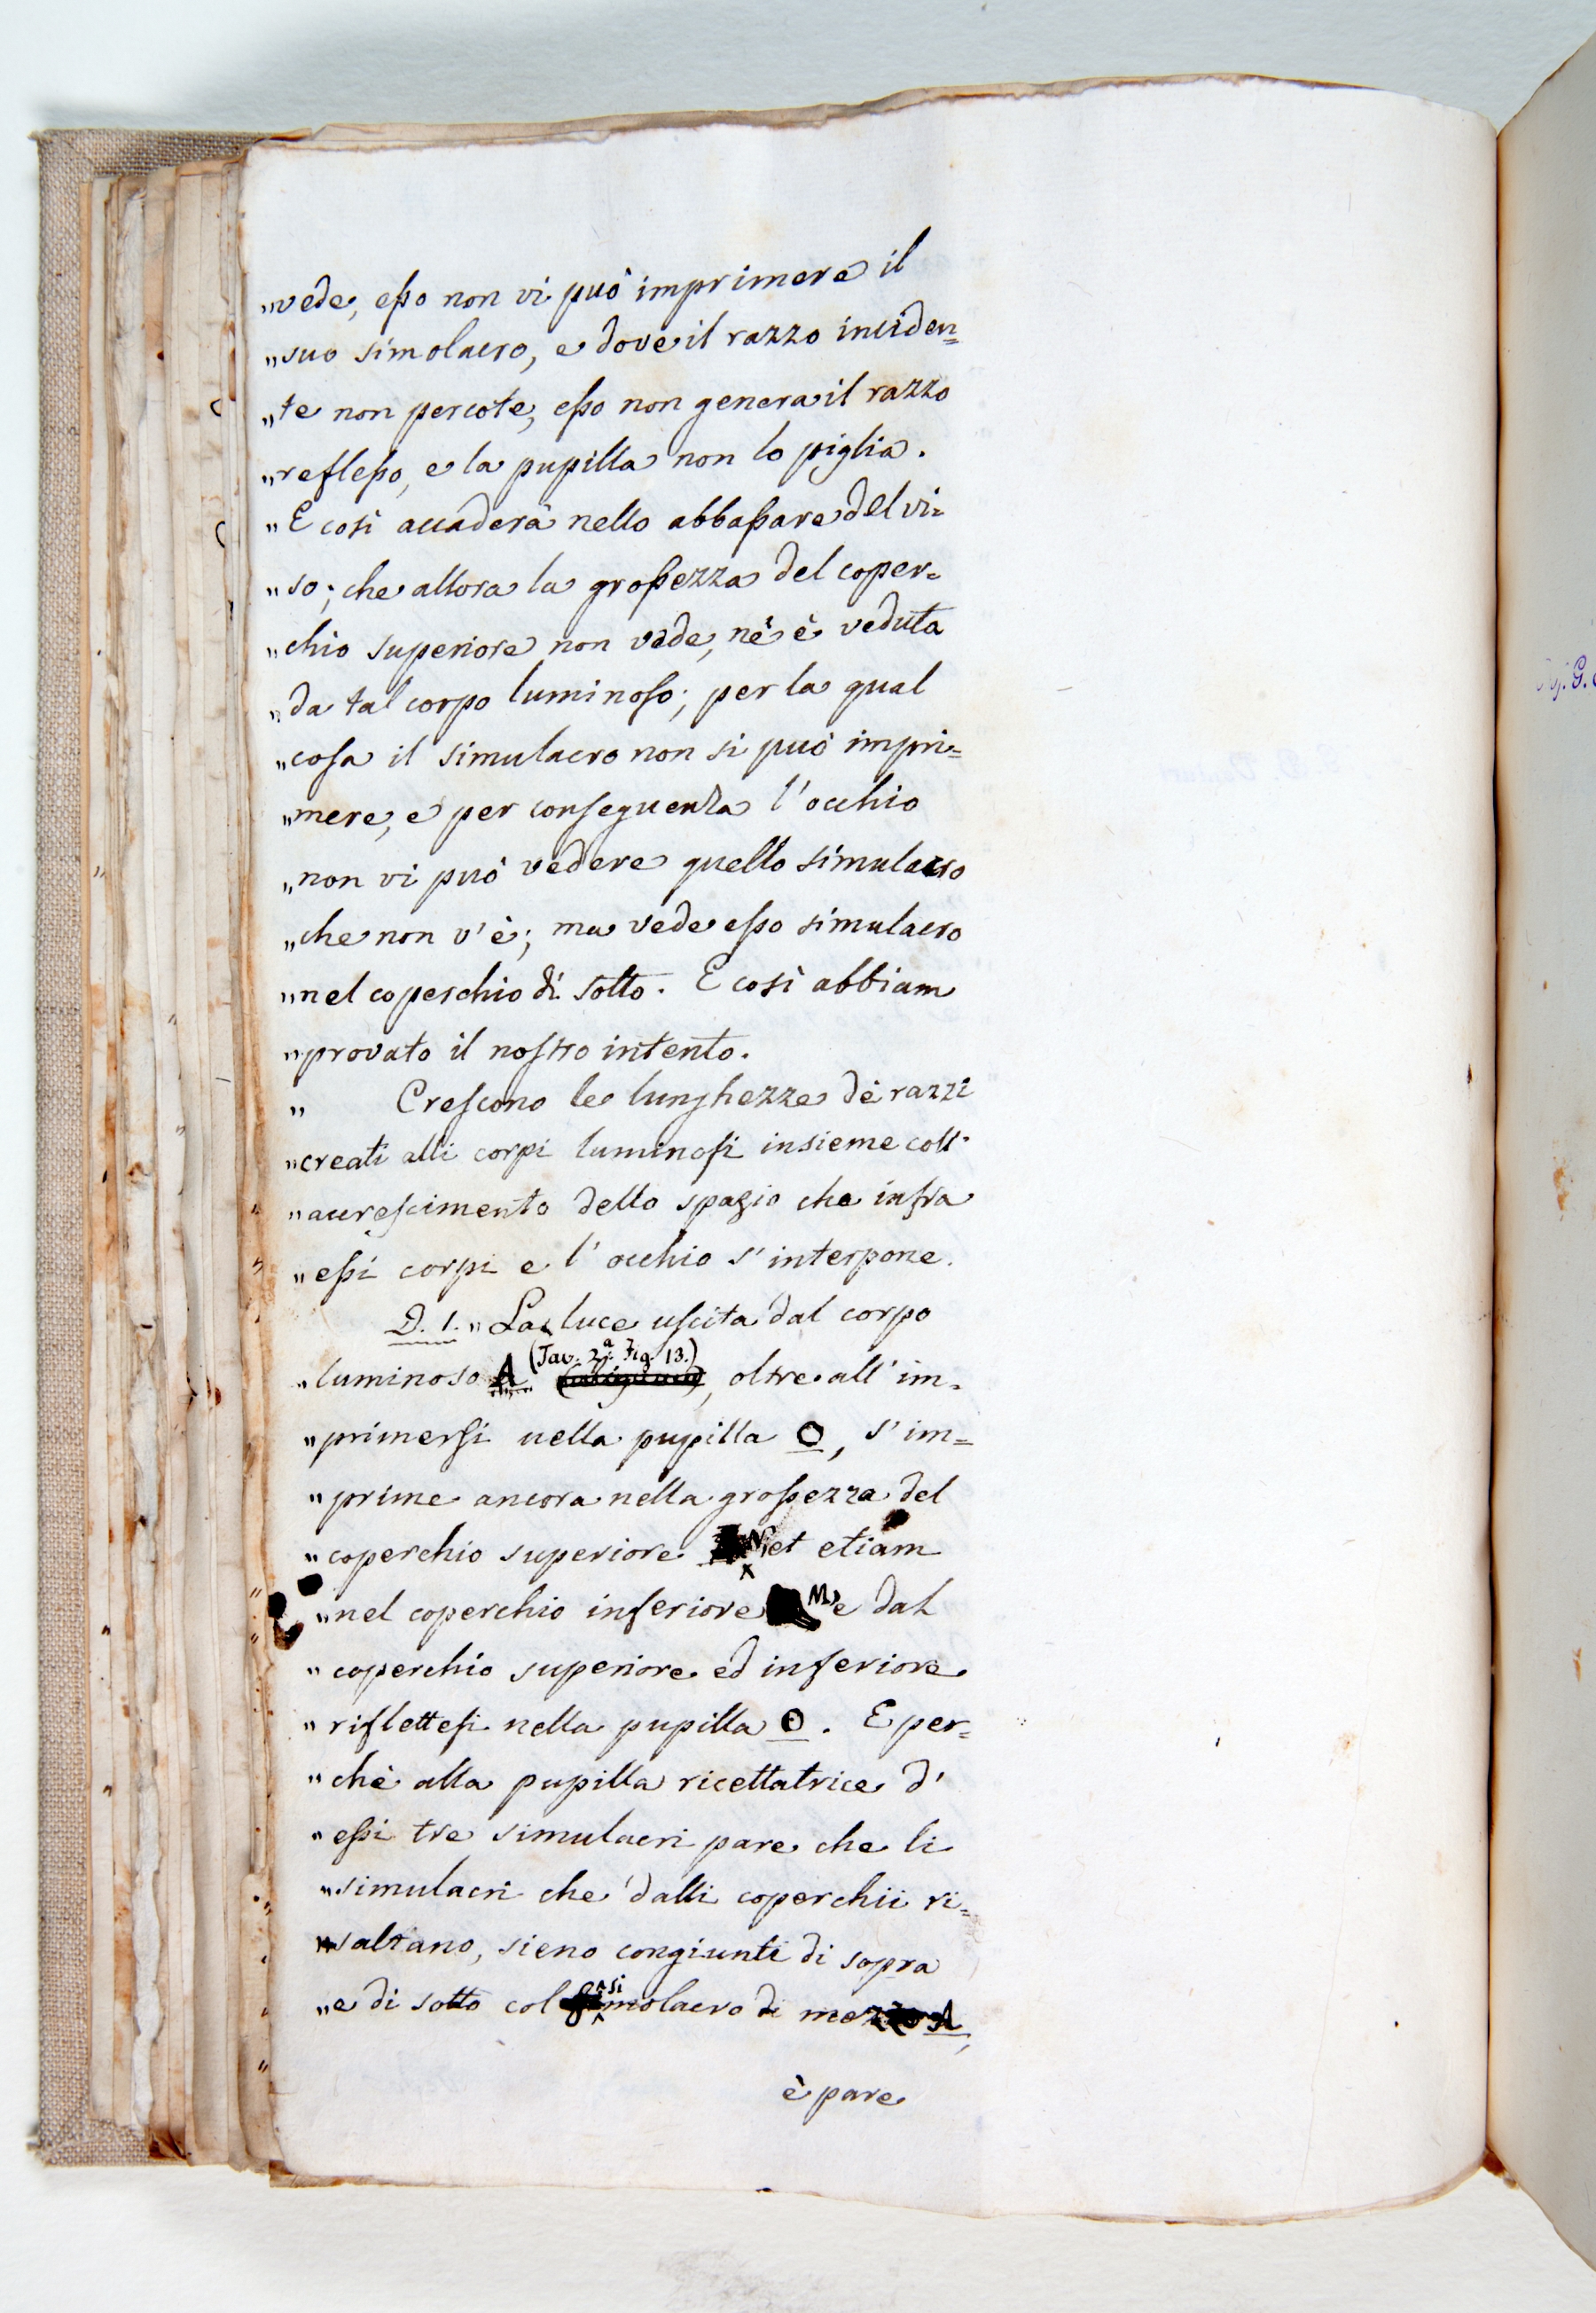 „vede, esso non vi può imprimere il
„suo simolacro, e dove il razzo inciden=
„te non percote, esso non genera il razzo
„reflesso, e la pupilla non lo piglia.
„E così accaderà nello abbassare del vi=
„so; che allora la grossezza del coper=
„chio superiore non vede, nè è veduta
„da tal corpo luminoso; per la qual
„cosa il simulacro non si può impri=
„mere, e per conseguenza l'occhio
„non vi può vedere quello simulacro
„che non v'è; ma vede esso simulacro
„nel coperchio di sotto. E così abbiam
„provato il nostro intento.
„ Crescono le lunghezze dè razzi
„creati alli corpi luminosi insieme coll'
„accrescimento dello spazio che infra
„essi corpi e l'occhio s'interpone.
D. 1. „La luce uscita dal corpo
(Tav. 2.ª Fig. 13.)
„luminoso A, oltre all'im=
„primersi nella pupilla O, s'im=
„prime ancora nella grossezza del
„coperchio superiore N, et etiam
„nel coperchio inferiore M, e dal
„coperchio superiore ed inferiore
„riflettesi nella pupilla O. E per=
„chè alla pupilla ricettatrice d'
„essi tre simulacri pare che li
„simulacri che dalli coperchii ri=
„saltano, sieno congiunti di sopra
„e di sotto col simolacro di mezzo A,
è pare